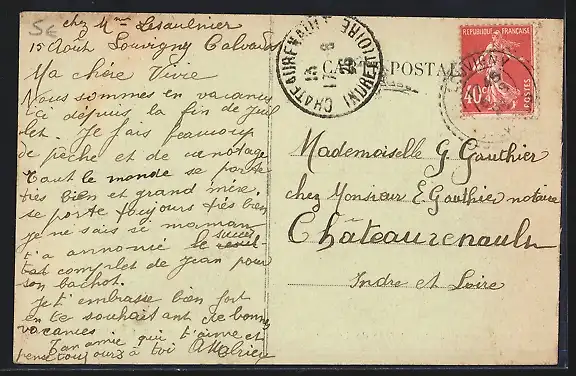 5€
chez Mme Lesaulnier
15 Août Louvigny Calvados
Ma chère Vivie
Nous sommes en vacances
ici depuis la fin de Juil
let. Je fais beaucoup
de pêche et de canotage
Tout le monde se porte
très bien et grand mère
se porte toujours très bien
je ne sais se maman
t'a annoncé le succès
tat complet de Jean pour
son bachot.
Je t'embrasse bien fort
en te souhaitant de bonnes
vacances
Ton amie qui t'aime et
pense toujours à toi
CARTE POSTALE
CHATEAURENAULT
INDRE ET LOIRE
REPUBLIQUE FRANÇAISE
40c
POSTES
LOUVIGNY
Mademoiselle G. Gauthier
chez Monsieur E. Gauthier notaire
Châteaurenault
Indre et Loire